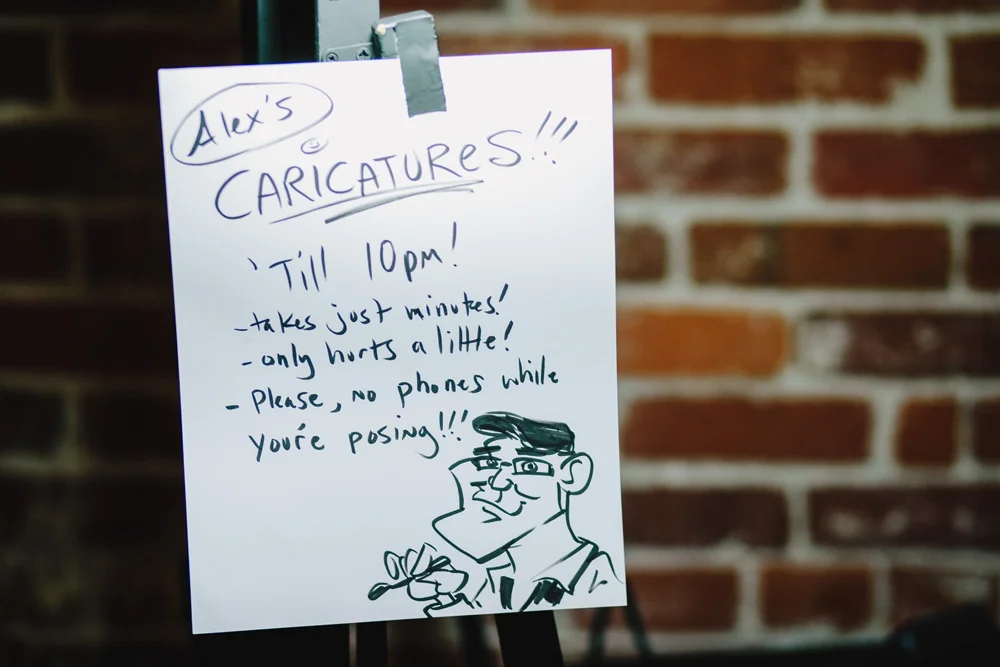 Alex's
CARICATUReS!!!
'Till 10pm!
-takes just minutes!
-only hurts a little!
- Please, no phones while
you're posing!!!